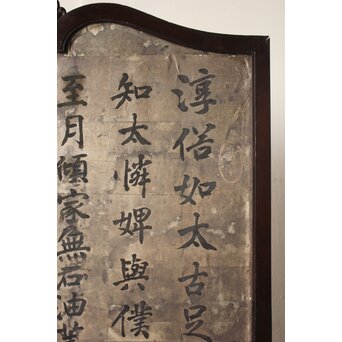 淳俗如太古足
知太憐婢與僕
至月傾家無石油